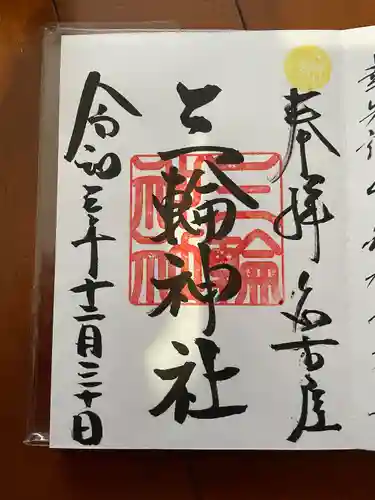 奉拝 名古屋
三輪神社
三輪神社
令和三年十二月三十日